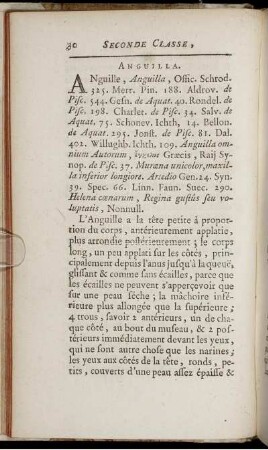 30 SECONDE CLASSE,
ANGUILLA.
ANguille, Anguilla, Offic. Schrod.
325. Merr. Pin. 188. Aldrov. de
Pisc. 544. Gesn. de Aquat. 40. Rondel. de
Pisc. 198. Charlet. de Pisc. 34. Salv. de
Aquat. 75. Schonev. Ichth, 14. Bellon.
de Aquat. 295. Jonst. de Pisc. 81. Dal.
402. Willughb. Ichth. 109. Anguilla om-
nium Autorum, Græcis, Raij Sy-
nop. de Pisc. 37. Murœna unicolor, maxil-
la inferior longiore. Artedio Gen. 24. Syn.
39. Spec. 66. Linn. Faun. Suec. 290.
Helena cœnarum, Regina gustûs seu vo-
luptatis, Nonnull.
L'Anguille a la tête petite à propor-
tion du corps, antérieurement applatie,
plus arrondie postérieurement; le corps
long, un peu applati sur les côtés, prin-
cipalement depuis l'anus jusqu'à la queue,
glissant & comme sans écailles, parce que
les écailles ne peuvent s'appercevoir que
sur une peau séche; la mâchoire infé-
rieure plus allongée que la supérieure;
4 trous, savoir 2 antérieurs, un de cha-
que côté, au bout du museau, & 2 pos-
térieurs immédiatement devant les yeux,
qui ne sont autre chose que les narines;
les yeux aux côtés de la tête, ronds, pe-
tits, couverts d'une peau assez épaisse &